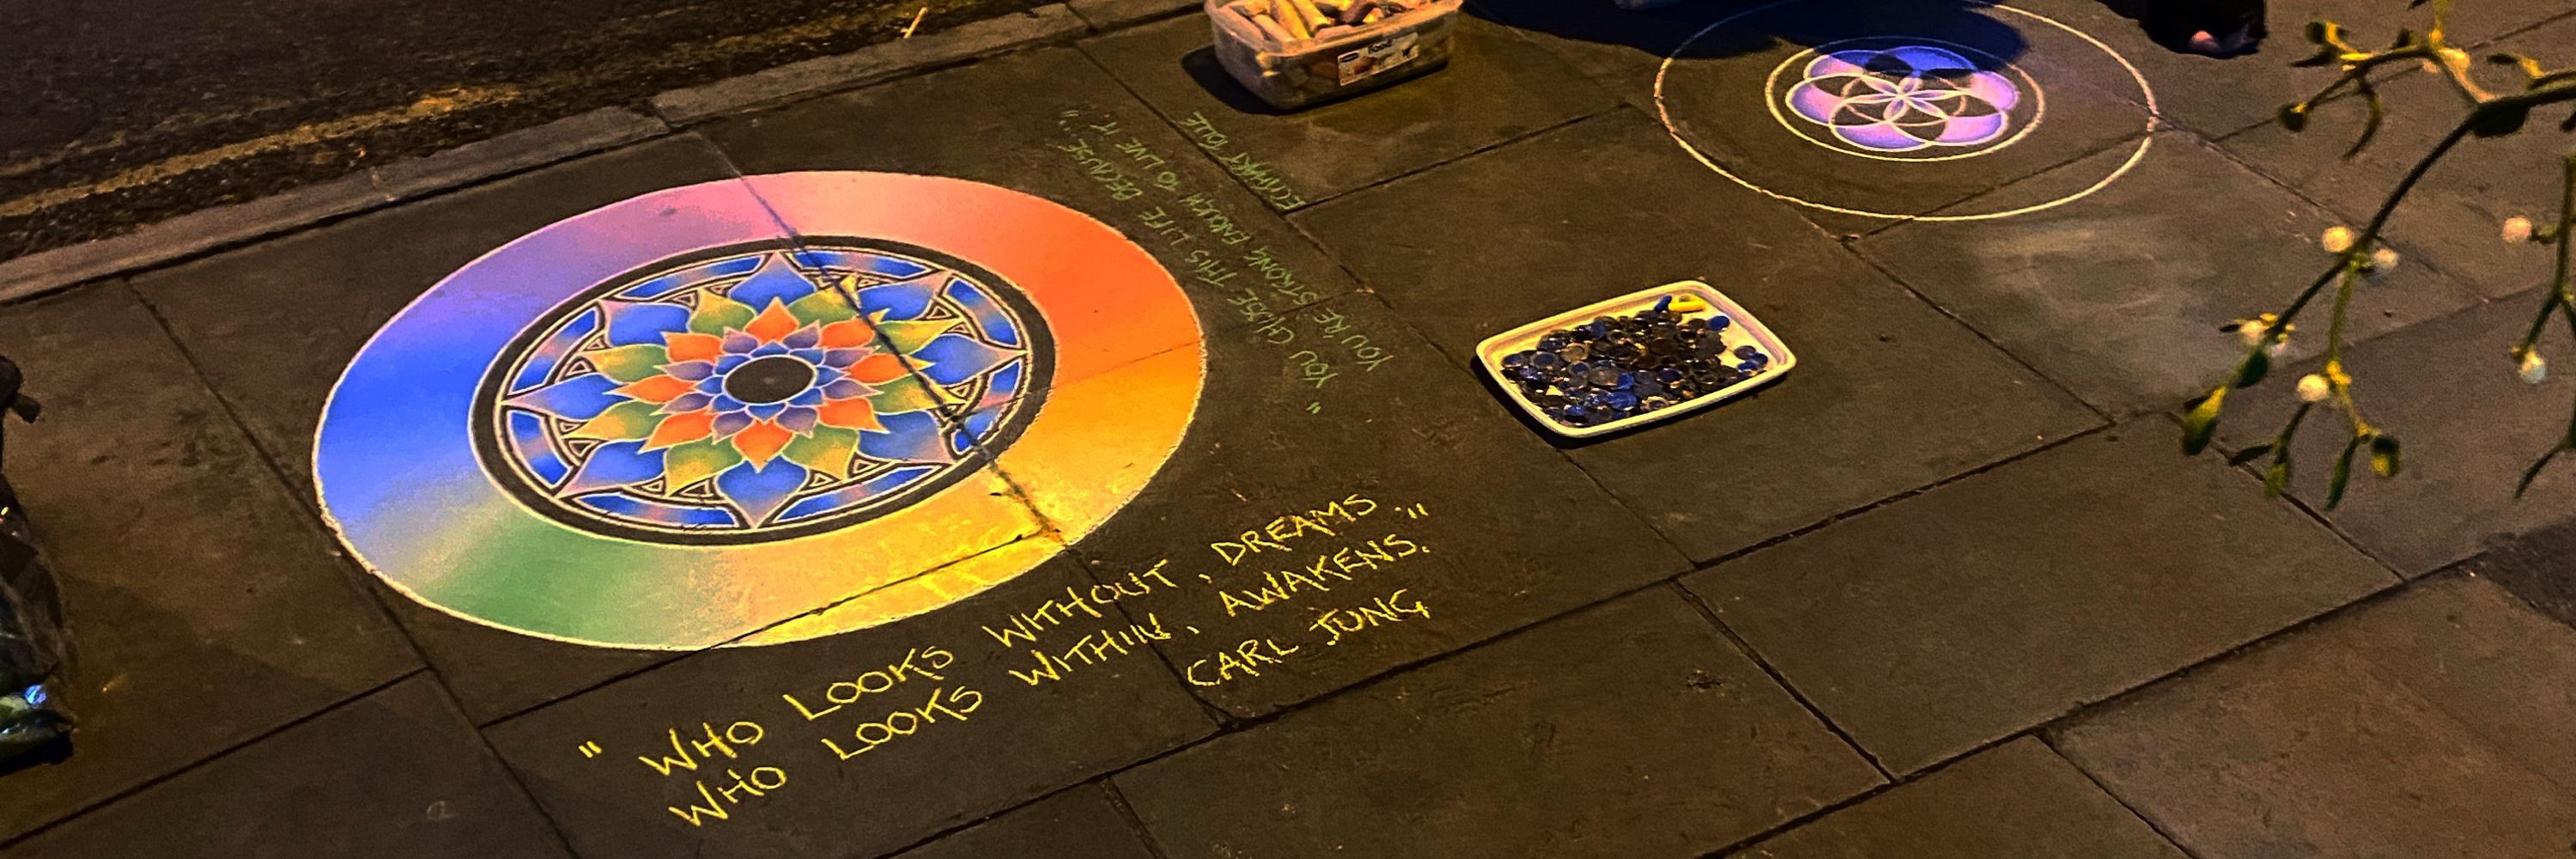 " WHO LOOKS WITHOUT, DREAMS.
WHO LOOKS WITHIN, AWAKENS."
CARL JUNG
" YOU CHOSE THIS LIFE BECAUSE
YOU'RE STRONG ENOUGH TO LIVE IT."
ECKHART TOLLE